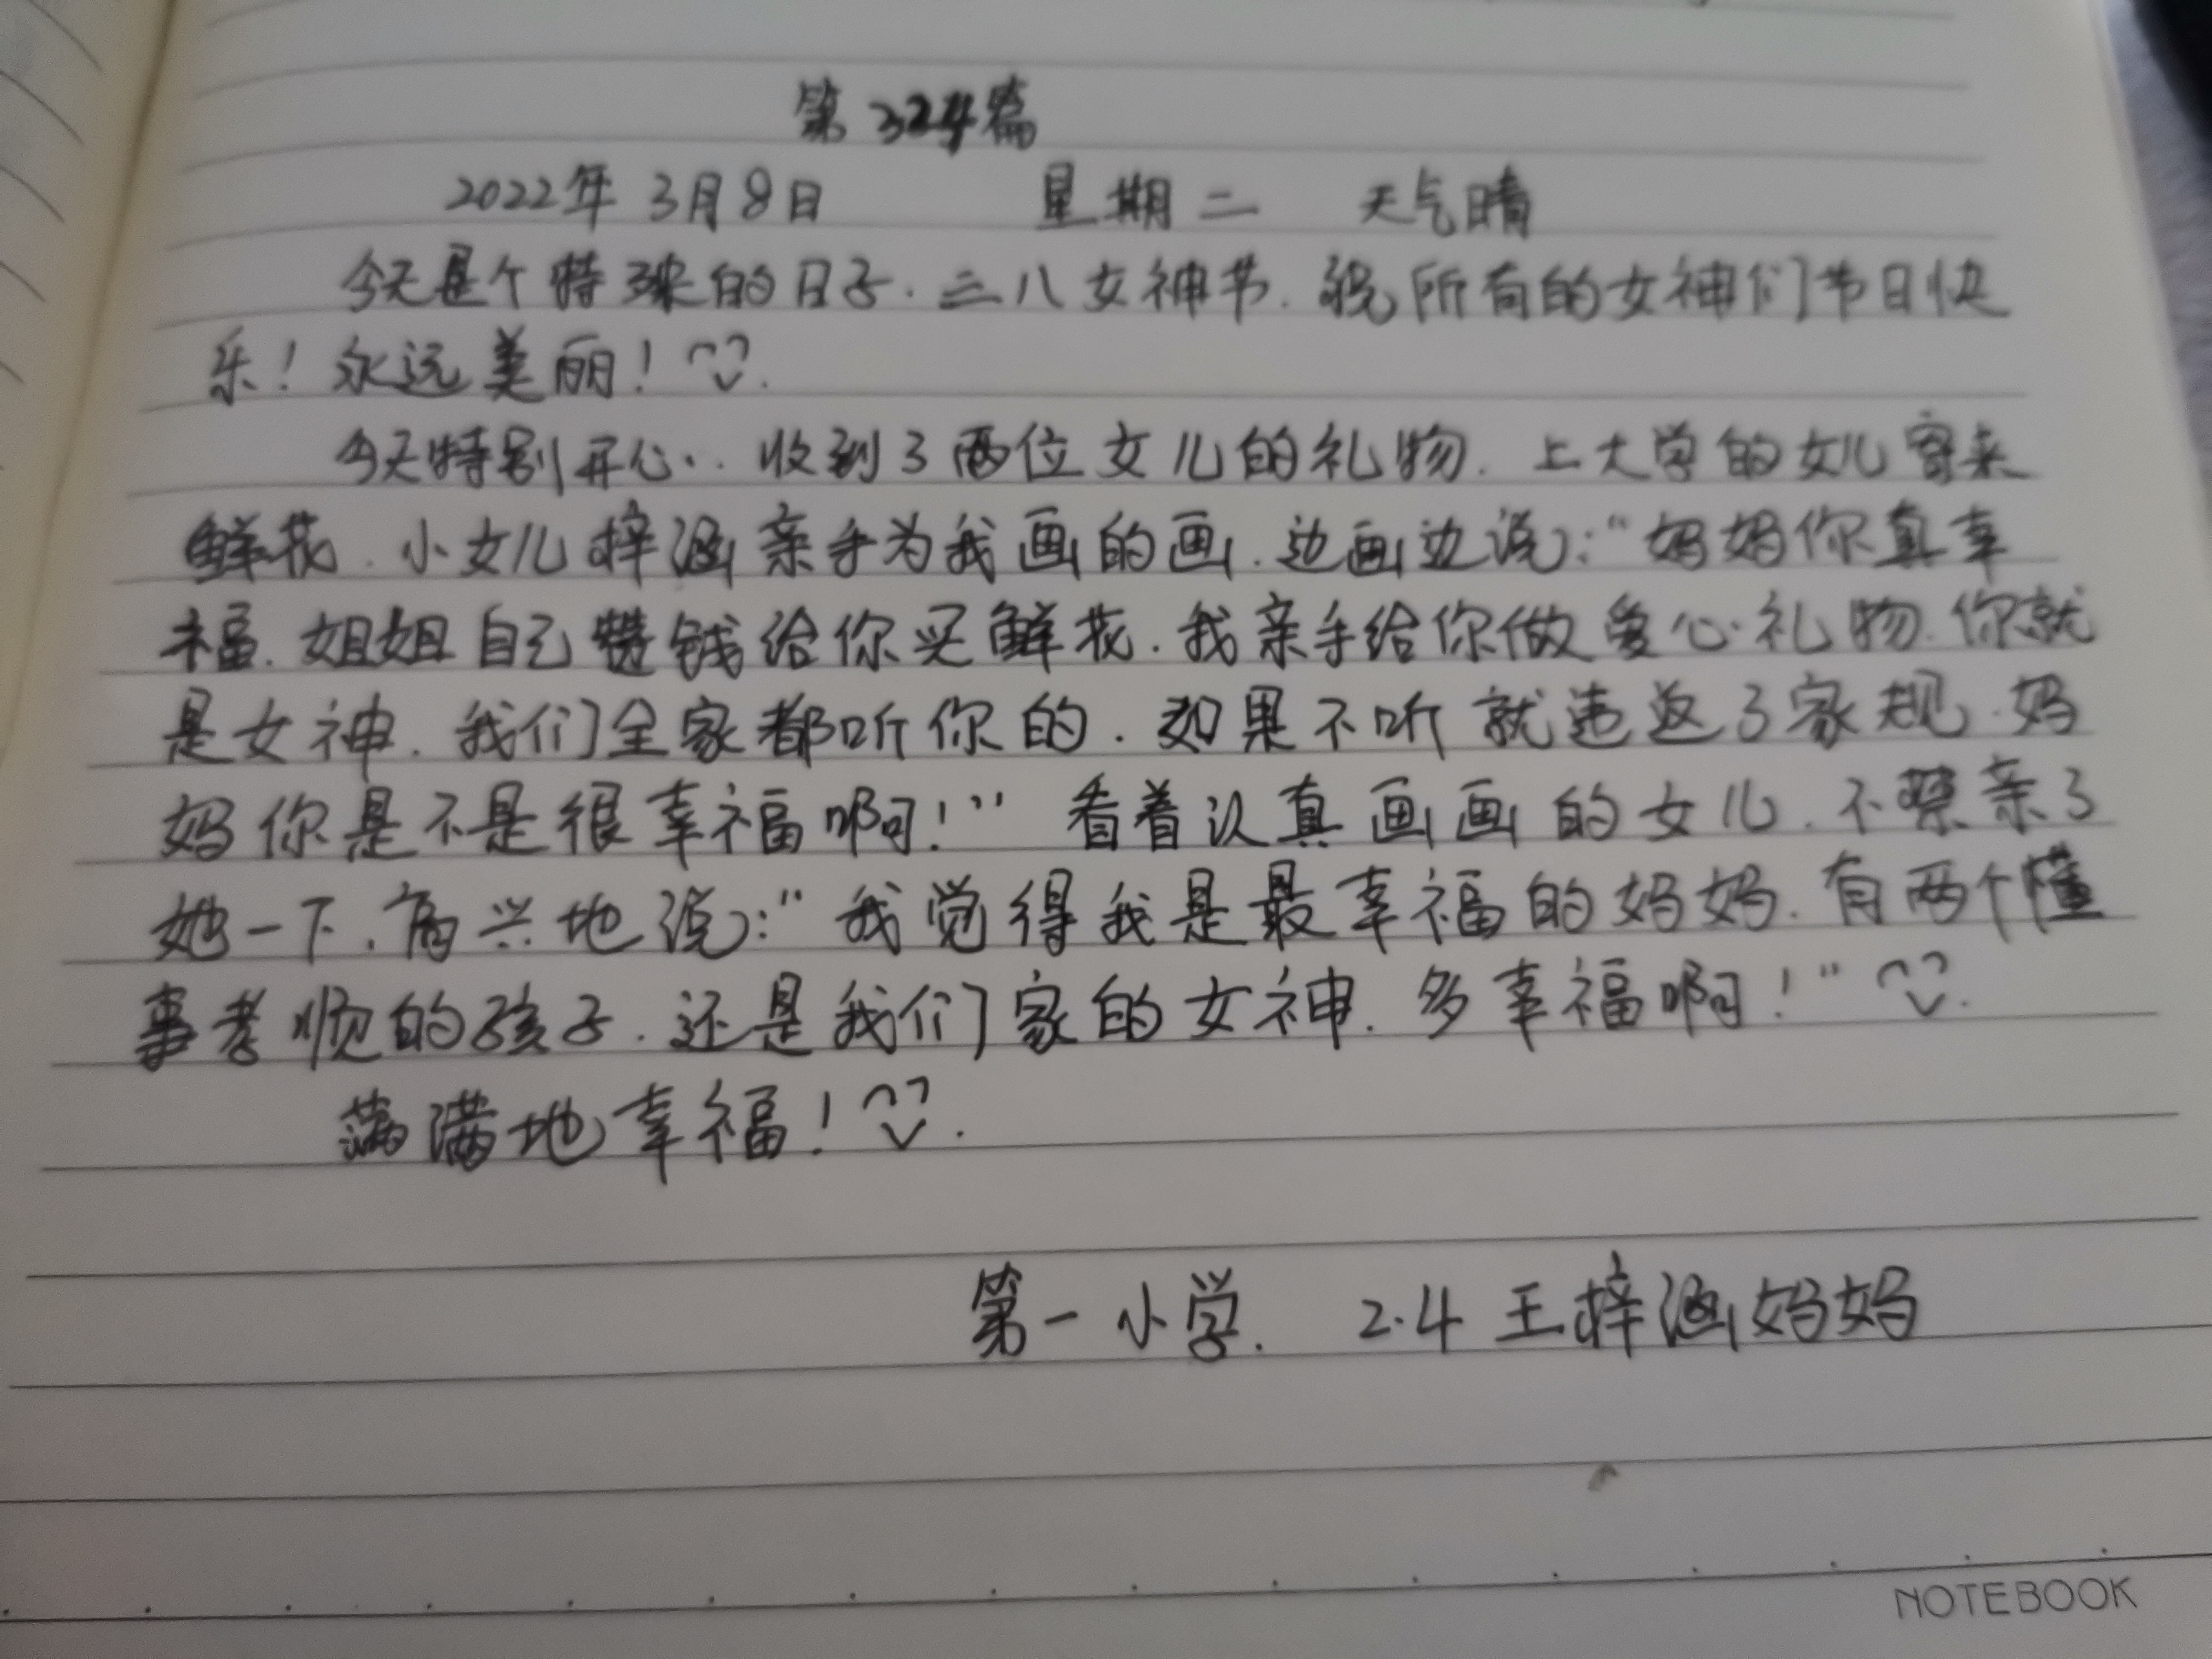 第324篇
2022年3月8日 星期二 天气晴
今天是个特殊的日子.三八女神节.祝所有的女神们节日快
乐!永远美丽!
今天特别开心..收到了两位女儿的礼物.上大学的女儿寄来
鲜花.小女儿梓涵亲手为我画的画.边画边说:“妈妈你真幸
福.姐姐自己攒钱给你买鲜花.我亲手给你做爱心礼物.你就
是女神.我们全家都听你的.如果不听就违返了家规.妈
妈你是不是很幸福啊!”看着认真画画的女儿.不禁亲了
她一下.高兴地说:“我觉得我是最幸福的妈妈.有两个懂
事孝顺的孩子.还是我们家的女神.多幸福啊!”
满满地幸福!
第一小学. 2.4 王梓涵妈妈
NOTEBOOK